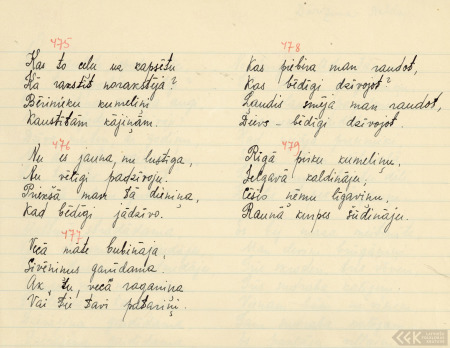 475
Kas to ceļu uz kapsētu
Kā rakstīt norakstīja?
Bērinieku kumeliņi
Kaustītām kājiņām.
476
Nu es jauna, nu lustīga,
Nu vētīgi padzīvoju.
Priekšā man tā dieniņa,
Kad bēdīgi jādzīvo.
477
Vecā māte bubināja,
Sivēniņus ganīdama.
Ak, tu, vecā raganiņa
Vai tie tavi pātariņi.
478
Kas piebira man raudot,
Kas bēdīgi dzīvojot?
Ļaudis smēja man raudot,
Dievs – bēdīgi dzīvojot.
479
Rīgā pirku kumeliņu,
Jelgavā kaldināju;
Cēsīs ņēmu līgaviņu,
Raunā kurpes šūdināju.